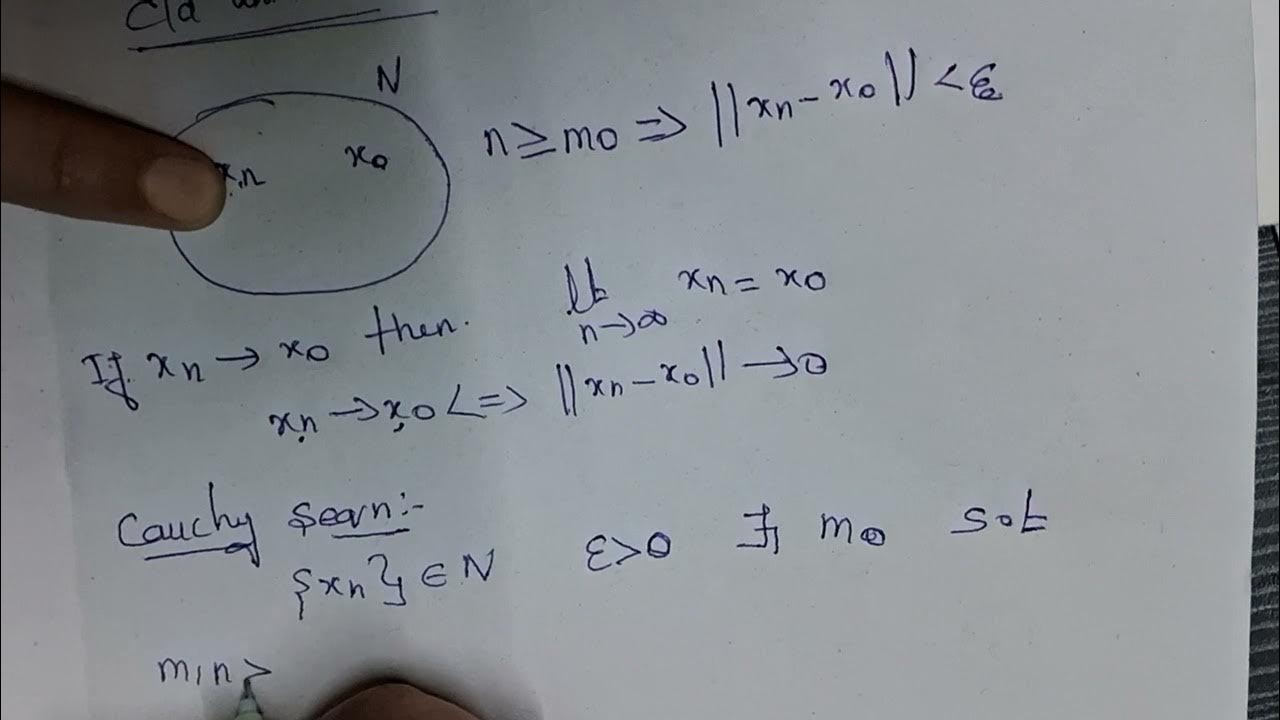 N
xn x0
n ≥ m0 => ||xn - x0|| < ε
If xn → x0 then. lt xn = x0
n→∞
xn → x0 <=> ||xn - x0|| → 0
Cauchy seqn:-
{xn} ∈ N ε>0 ∃ m0 s.t
m,n >